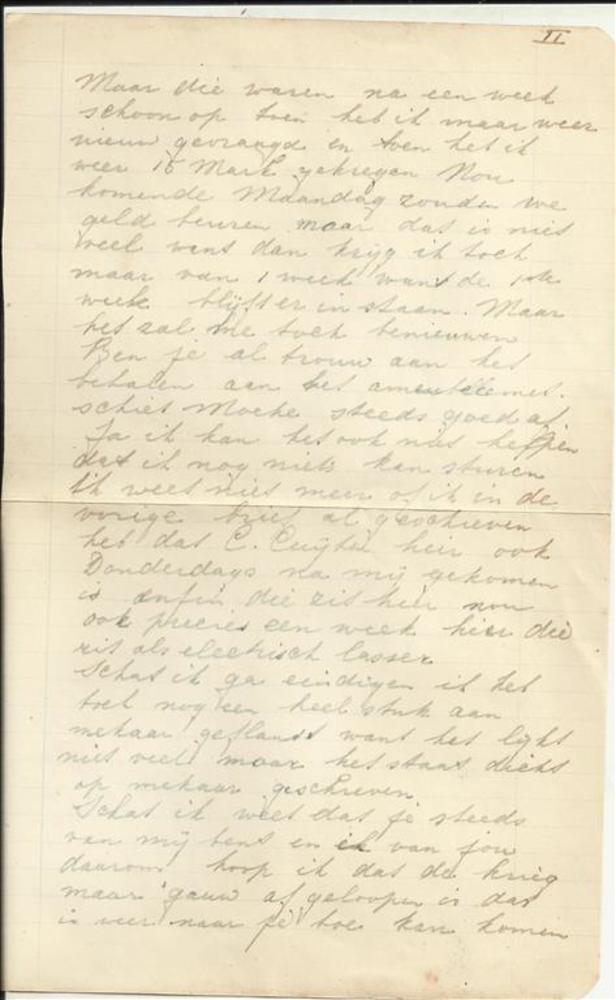 II
Maar die waren na een week
schoon op toen heb ik maar weer
nieuw gevraagd en toen heb ik
weer 15 Mark gekregen Nou
komende Maandag zouden we
geld beuren maar dat is niet
veel want dan krijg ik toch
maar van 1 week want de 1ste
week blijft er in staan. Maar
het zal me toch benieuwen
Ben je al trouw aan het
betalen aan het
schiet Moeke steeds goed af
Ja ik kan het ook niet helpen
dat ik nog niets kan sturen
Ik weet niet meer of ik in de
vorige brief al geschreven
heb dat C. hier ook
Donderdags na mij gekomen
is enfin die zit hier nou
ook precies een week hier die
zit als electrisch lasser
Schat ik ga eindigen ik heb
toch nog een heel stuk aan
mekaar geflanst want het lijkt
niet veel maar het staat dicht
op mekaar geschreven
Schat ik weet dat je steeds
van mij bent en ik van jou
daarom hoop ik dat de krieg
maar gauw afgeloopen is dat
ik weer naar je toe kan komen